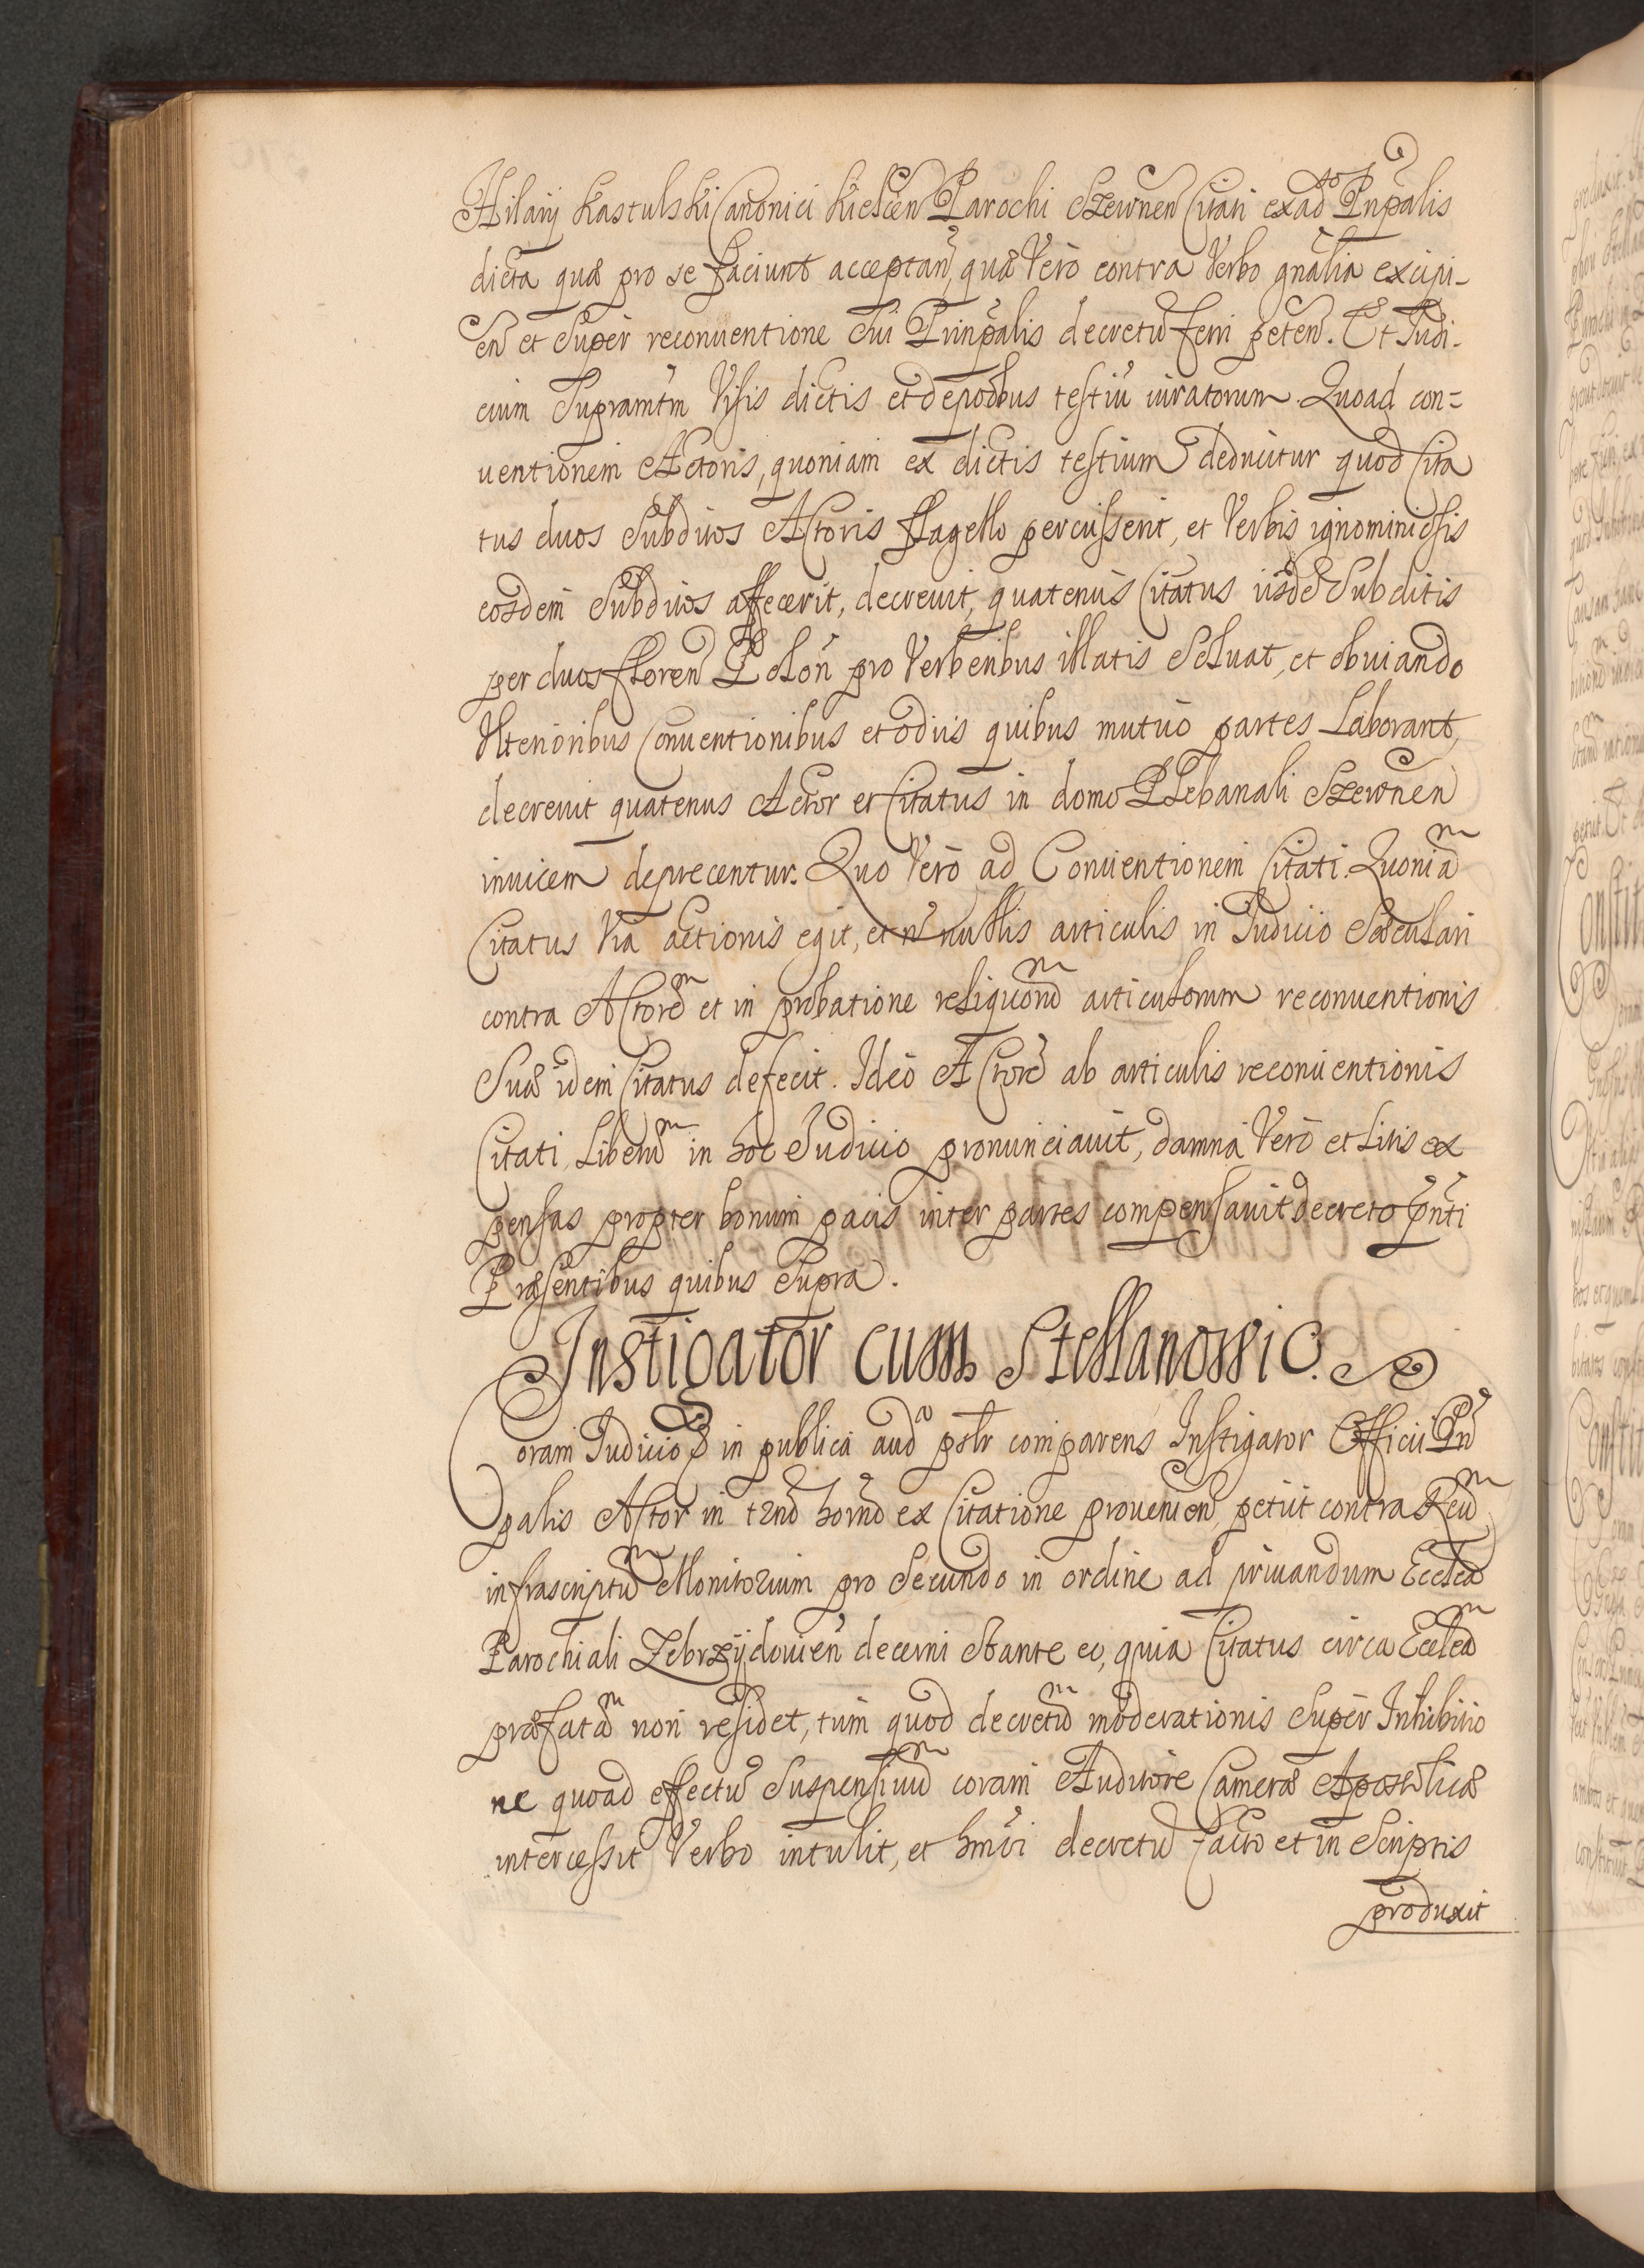 Hilarij Kastulski Canonici Kielcen Parochi Szewnen Citati ex ad Pnpalis
dicta quæ pro se faciunt acceptan, quæ Vero contra Verbo gnalia excipi-
en et Super reconuentione Sui Prinpalis decretu ferri peten. Et Iudi-
cium Supramtm Visis dictis et depoobus testiu iuratorum. Quoad con=
uentionem Actoris, quoniam ex dictis testium deducitur quod Cita
tus duos Subditos Actoris flagello percusserit, et Verbis ignominiosis
eosdem Subditos affecerit, decreuit, quatenus Citatus iisde Subditis
per duos floren Polon pro Verberibus illatis Soluat, et obuiando
Vlterioribus Conuentionibus et odiis quibus mutuo partes Laborant,
decreuit quatenus Actor et Citatus in domo Plebanali Szewnen
inuicem deprecentur. Quo Vero ad Conuentionem Citati. Quonia
Citatus Via actionis egit, et n nullis articulis in Iudicio Sæculari
contra Actore et in probatione reliquoru articulorum reconuentionis
Suæ idem Citatus defecit. Ideo Actore ab articulis reconuentionis
Citati, Liberu in hoc Iudicio pronunciauit, damna Vero et Litis ex
pensas propter bonum pacis inter partes compensauit decreto pnti
Præsentibus quibus Supra.
Instigator cum Stellanowic.
Coram Iudicio in publica aud pslr comparens Instigator Officii Prn
palis Actor in tnd horno ex Citatione prouenien, petiit contra Reu
infrascriptu Monitorium pro Secundo in ordine ad priuandum Eccla
Parochiali Zebrzijdouien decerni Stante eo, quia Citatus circa Eccla
præfata non residet, tum quod decretu moderationis Super Inhibitio
ne quoad effectu Suspensiuu coram Auditore Cameræ Apostolicæ
intercessit Verbo intulit, et hmoi decretu facto et in Scriptis
produxit